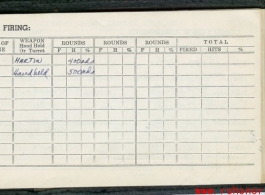 FIRING:
OF WEAPON ROUNDS ROUNDS ROUNDS TOTAL
Hand Held
(Or Turret) F H % F H % F H % FIRED HITS %
MARTIN 400
Hand held 500